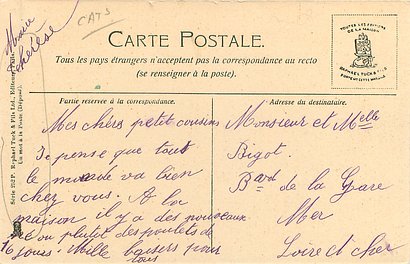 CATS
Marie
Thérèse
CARTE POSTALE.
Tous les pays étrangers n'acceptent pas la correspondance au recto
(se renseigner à la poste).
TOUTES LES EDITIONS
DE LA MAISON
RAPHAEL TUCK & FILS
PORTENT CETTE MARQUE
Série 252 P. Raphael Tuck & Fils Ltd, Editeurs,
Un mot à la Poste (Déposé).
Partie réservée à la correspondance.
Mes chers petit cousins
Je pense que tout
le monde va bien
chez vous. A la
maison il y a des nouveaux
né ou plutôt des poulets de
16 jours. Mille baisers pour
tous
Adresse du destinataire.
Monsieur et Melle
Bigot.
Bard de la Gare
Mer
Loire et cher